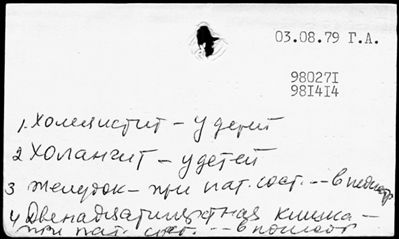 03.08.79 Г.А.
980271
981414
1. Холецистит – у детей
2 Холангит – у детей
3 Желудок – при пат. сост. -- в педиатр
4 Двенадцатиперстная кишка –
при пат. сост. -- в педиатр